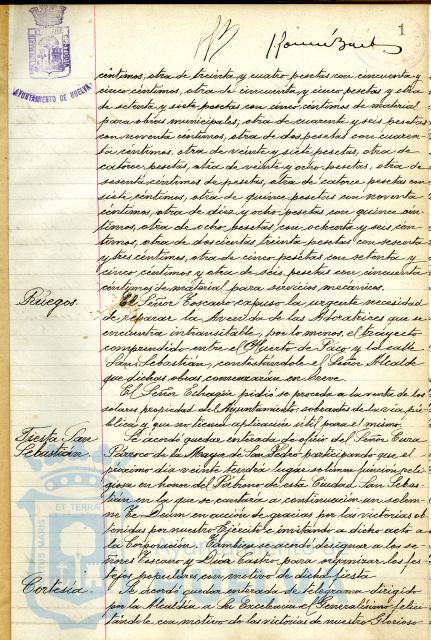 1
AYUNTAMIENTO DE HUELVA
céntimos, otra de treinta y cuatro pesetas con cincuenta y
cinco céntimos, otra de cincuenta y cinco pesetas y otra
de setenta y siete pesetas con cinco céntimos de material
para obras municipales; otra de cuarenta y seis pesetas
con noventa céntimos, otra de dos pesetas con cuaren-
ta céntimos, otra de veinte y siete pesetas, otra de
catorce pesetas, otra de veinte y ocho pesetas, otra de
sesenta céntimos de pesetas, otra de catorce pesetas con
siete céntimos, otra de quince pesetas con noventa
céntimos, otra de diez y ocho pesetas con quince cén-
timos, otra de ocho pesetas con ochenta y seis cén-
timos, otra de doscientas treinta pesetas con sesenta
y tres céntimos, otra de cinco pesetas con setenta y
cinco céntimos y otra de seis pesetas con cincuenta
céntimos de material para servicios mecánicos.
Ruegos.
El Señor Toscano expuso la urgente necesidad
de reparar la Avenida de las Adoratrices que se
encuentra intransitable, por lo menos, el trayecto
comprendido entre el Huerto de Paco y la calle
San Sebastián, contestándole el Señor Alcalde
que dichas obras comenzarán en breve.
El Señor Echagüe pidió se proceda a la venta de los
solares propiedad del Ayuntamiento, sobrantes de la vía pú-
blica y que no tienen aplicación útil para el mismo.
Fiesta San
Sebastián.
Se acordó quedar enterada de oficio del Señor Cura
Párroco de la Mayor de San Pedro participando que el
próximo día veinte tendrá lugar solemne función reli-
giosa en honor del Patrono de esta Ciudad San Sebas-
tián en la que se cantará a continuación un solem-
ne Te Deum en acción de gracias por las victorias ob-
tenidas por nuestro Ejército e invitando a dicho acto a
la Corporación. También se acordó designar a los se-
ñores Toscano y Oliva Castro, para organizar los fes-
tejos populares con motivo de dicha fiesta.
Cortesía.
Se acordó quedar enterada de telegrama dirigido
por la Alcaldía a Su Excelencia el Generalísimo felici-
tándole con motivo de las victorias de nuestro Glorioso